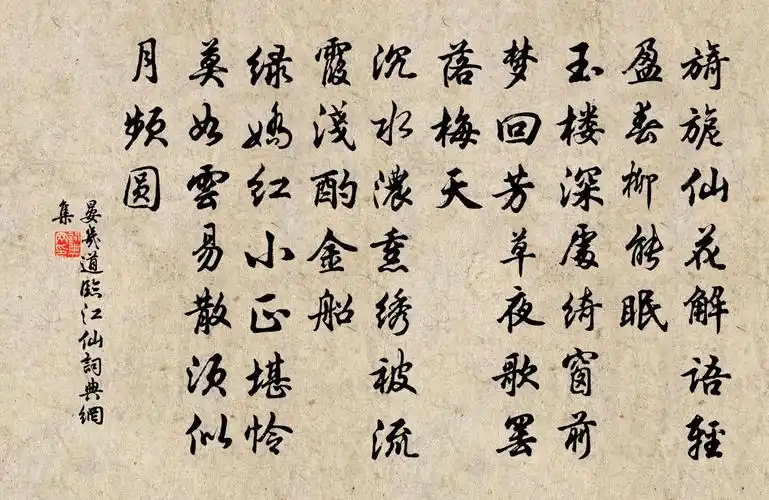 旖旎仙花解语轻
盈春柳能眠
玉楼深处绮窗前
梦回芳草夜歌罢
落梅天
沉水浓熏绣被流
霞浅酌金船
绿娇红小正堪怜
莫如雲易散须似
月频圆
晏幾道臨江仙詞典網
集